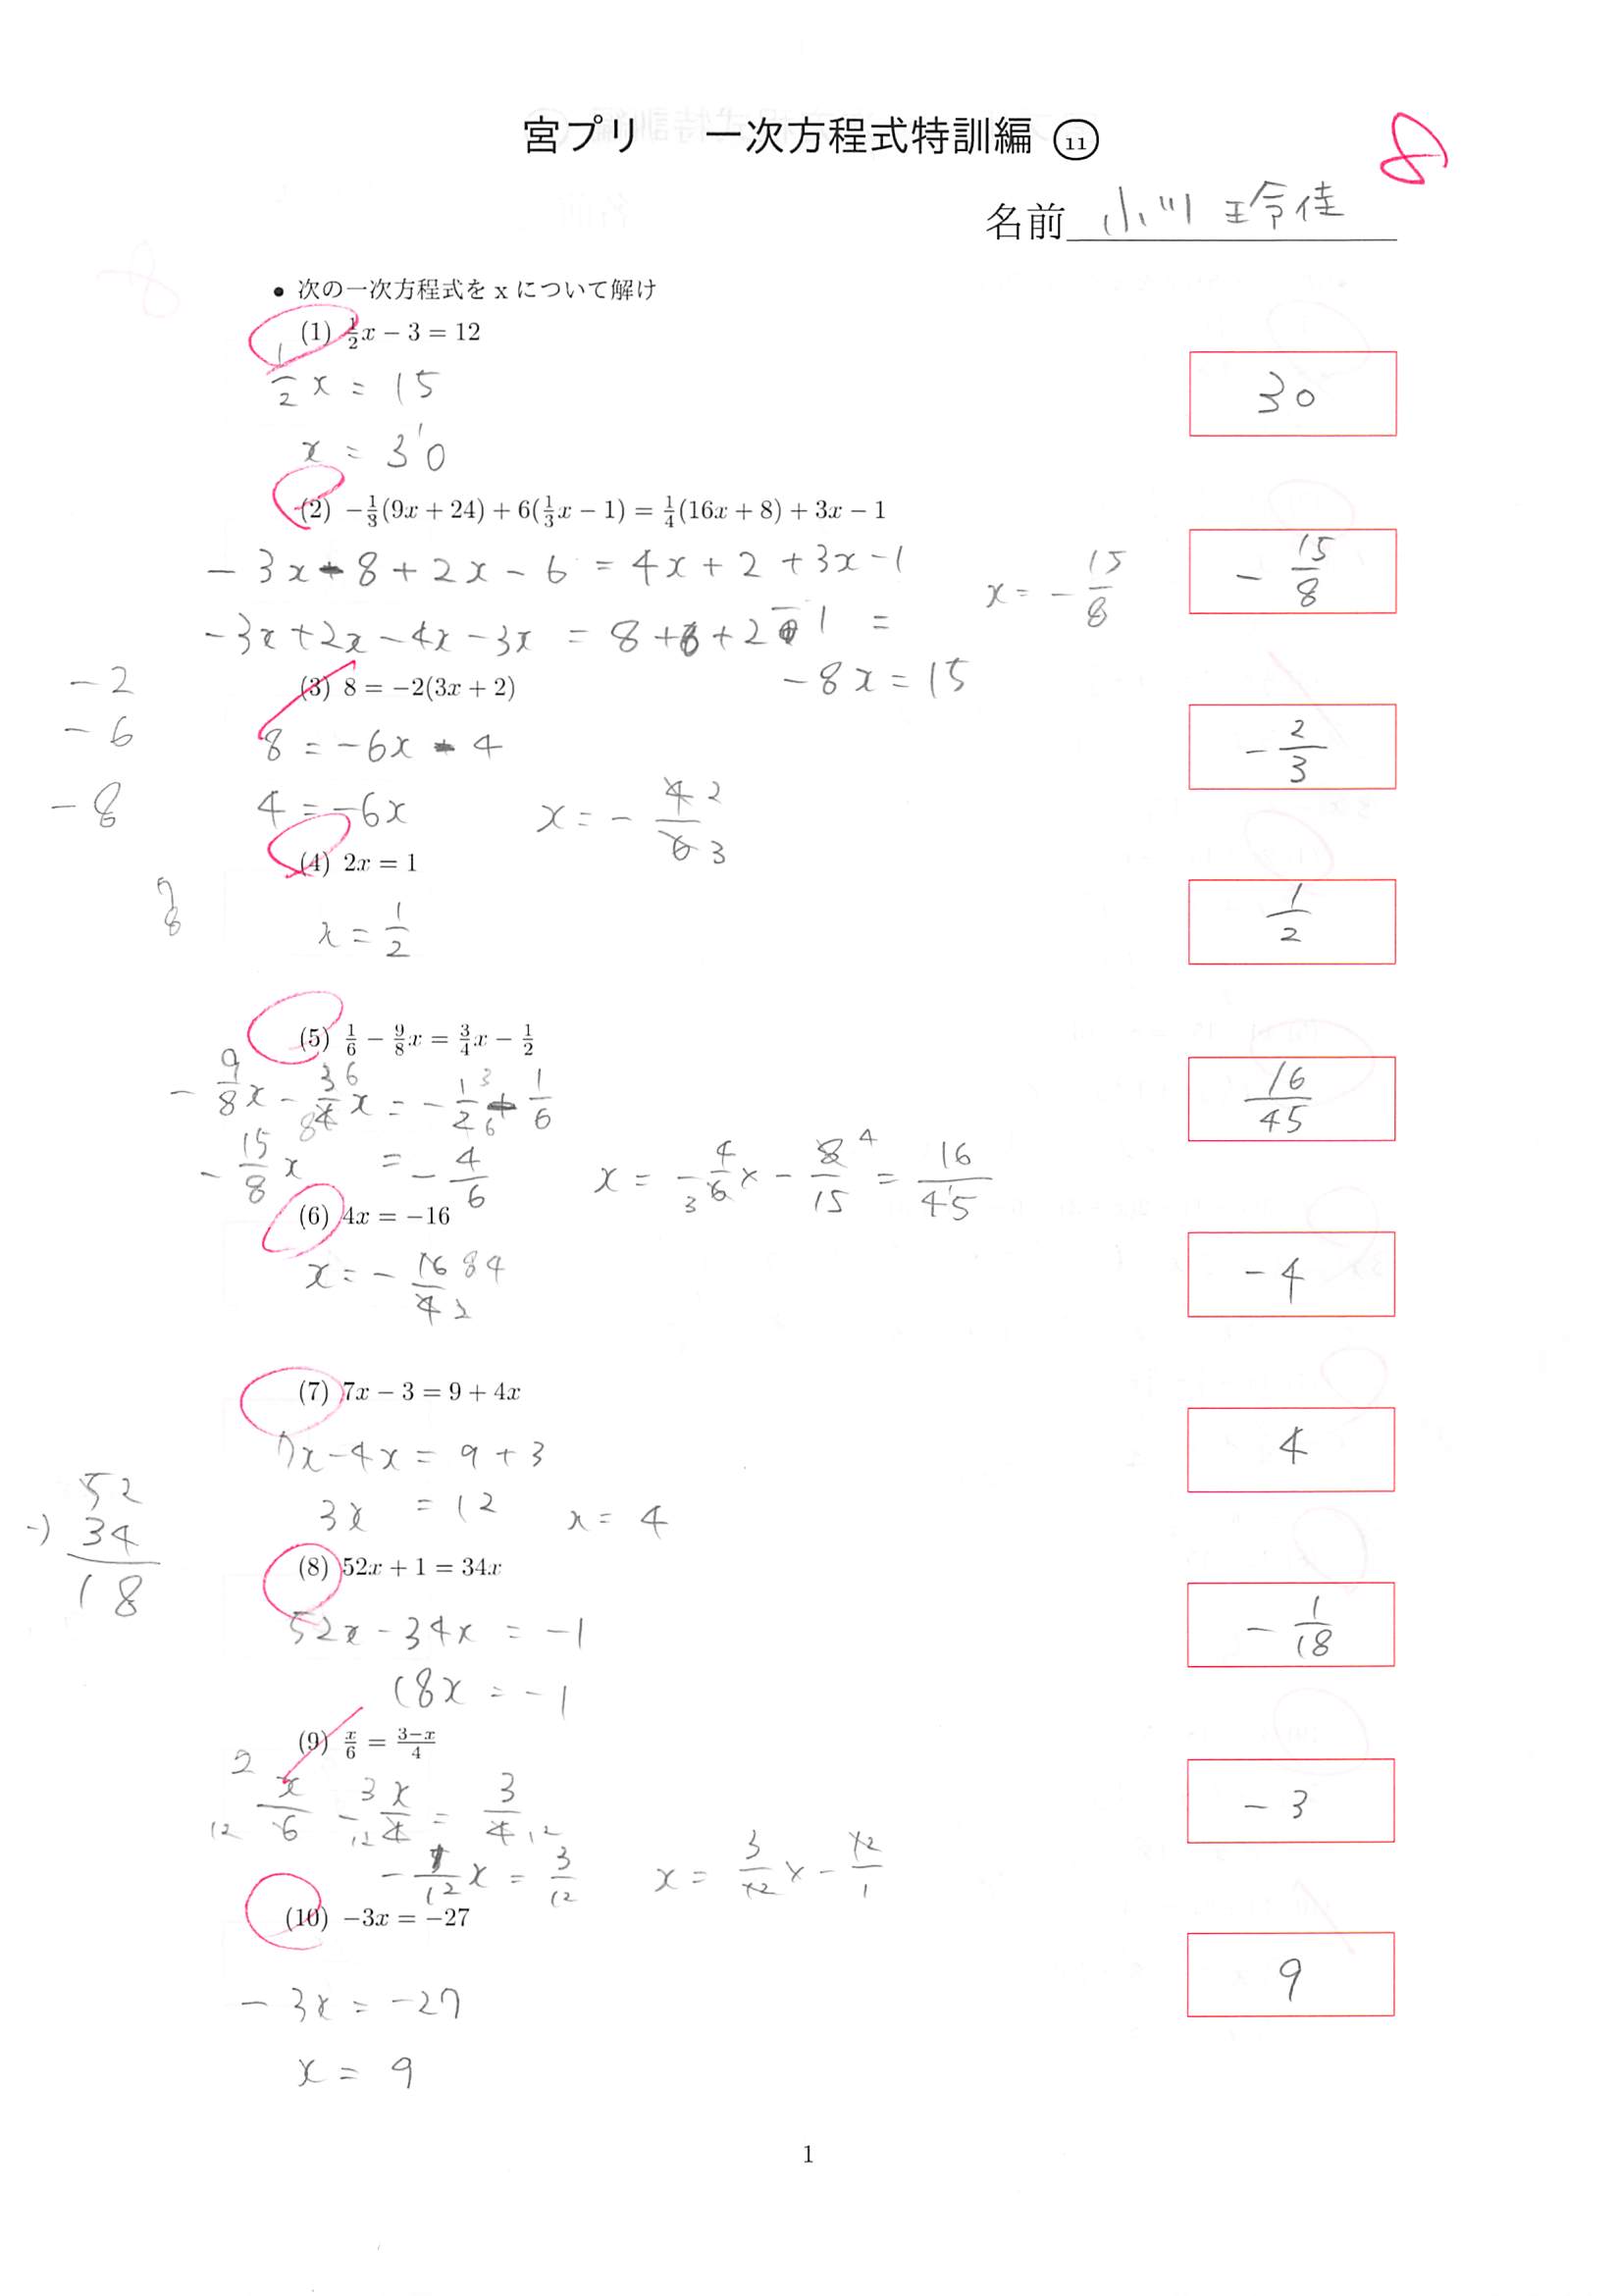 宮プリ 一次方程式特訓編 ⑪
8
名前 小川 玲佳
• 次の一次方程式を x について解け
(1) 1/2x − 3 = 12
1/2 x = 15
x = 30
30
(2) −1/3(9x + 24) + 6(1/3x − 1) = 1/4(16x + 8) + 3x − 1
− 3x − 8 + 2x − 6 = 4x + 2 + 3x − 1
− 3x + 2x − 4x − 3x = 8 + 6 + 2 − 1 =
− 8x = 15
x = − 15/8
− 15/8
(3) 8 = −2(3x + 2)
− 2
− 6
− 8
8 = −6x − 4
4 = −6x
x = − 4/6 2 3
− 2/3
(4) 2x = 1
x = 1/2
1/2
(5) 1/6 − 9/8x = 3/4x − 1/2
− 9/8 x − 3/4 x = − 1/2 + 1/6
6 8 3 6
− 15/8 x = − 4/6
x = − 4/6 × − 8/15 = 16/45
3 4
16/45
(6) 4x = −16
x = − 16/4 8 4 2
− 4
(7) 7x − 3 = 9 + 4x
7x − 4x = 9 + 3
3x = 12 x = 4
4
52
−) 34
18
(8) 52x + 1 = 34x
52x − 34x = −1
18x = −1
− 1/18
(9) x/6 = (3−x)/4
2 x/6 − 3 x/4 = 3/4
12 12 12
− 1/12 x = 3/12
x = 3/12 × − 12/1
− 3
(10) −3x = −27
− 3x = −27
x = 9
9
1